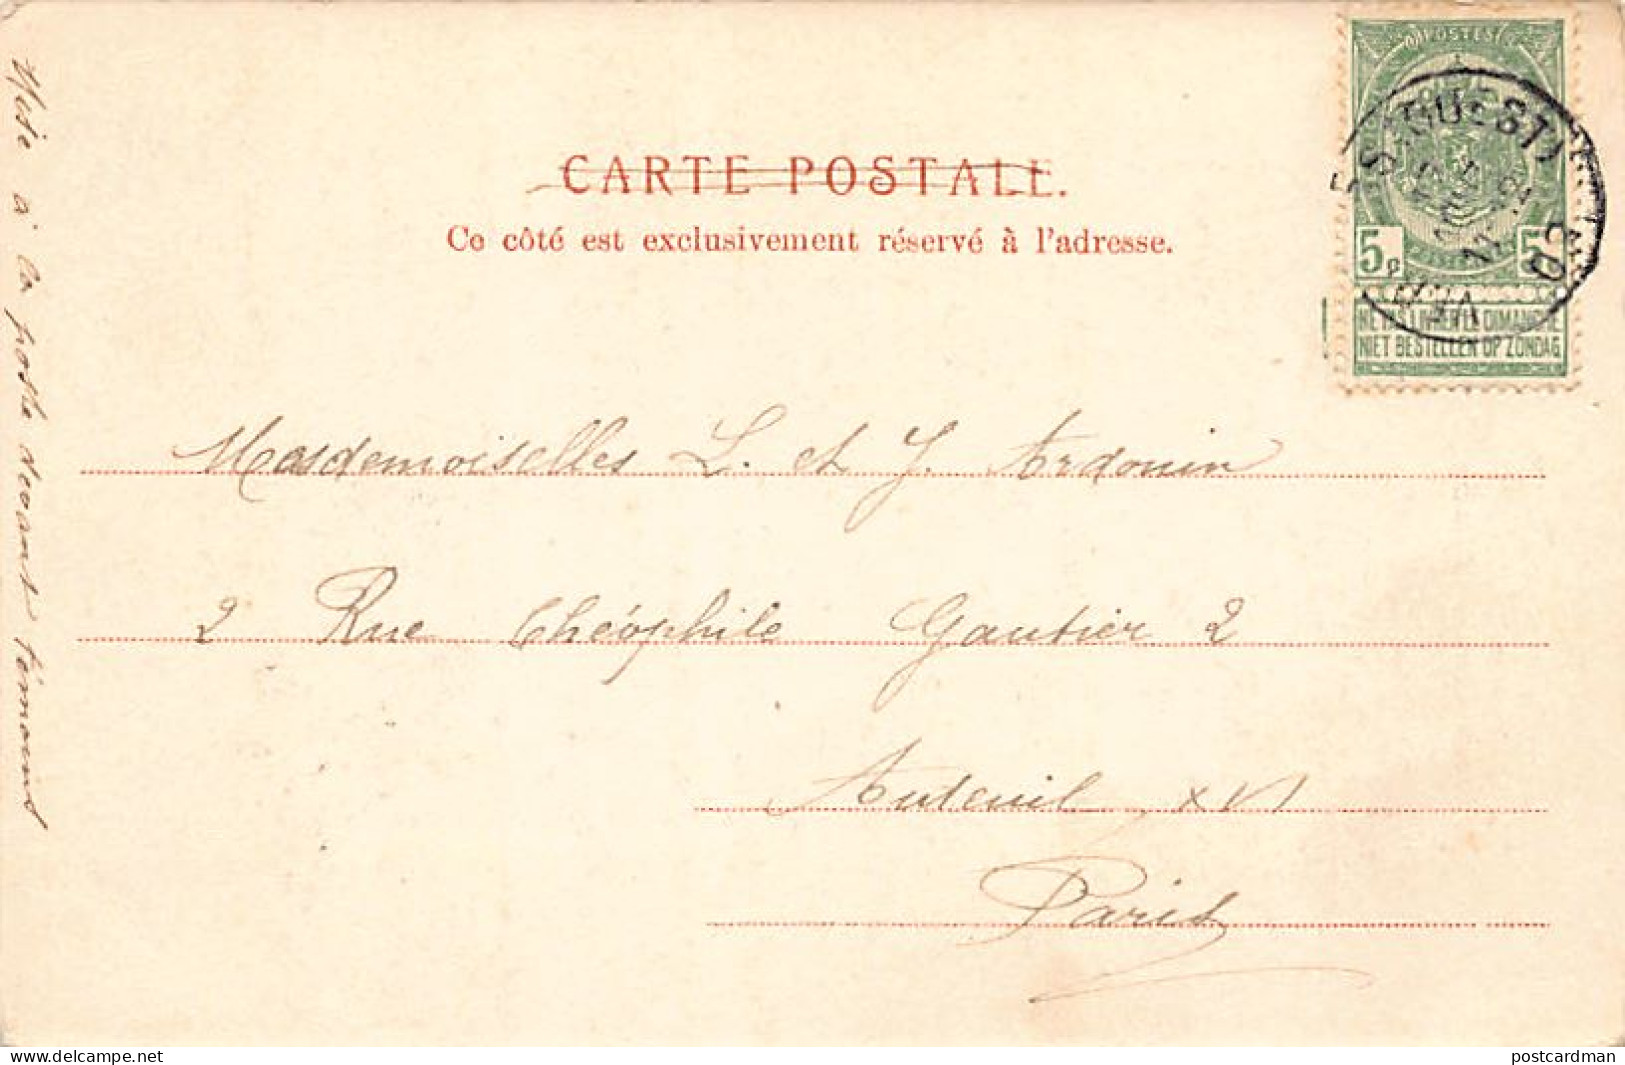 CARTE POSTALE.
Ce côté est exclusivement réservé à l'adresse.
POSTES
5 5
NE PAS LIVRER LE DIMANCHE
NIET BESTELLEN OP ZONDAG
Masdemoiselles L. et J. Ardouin
2 Rue Théophile Gautier 2
Auteuil XVI
Paris
Mise à la poste devant témoins
delcampe.net
postcardman